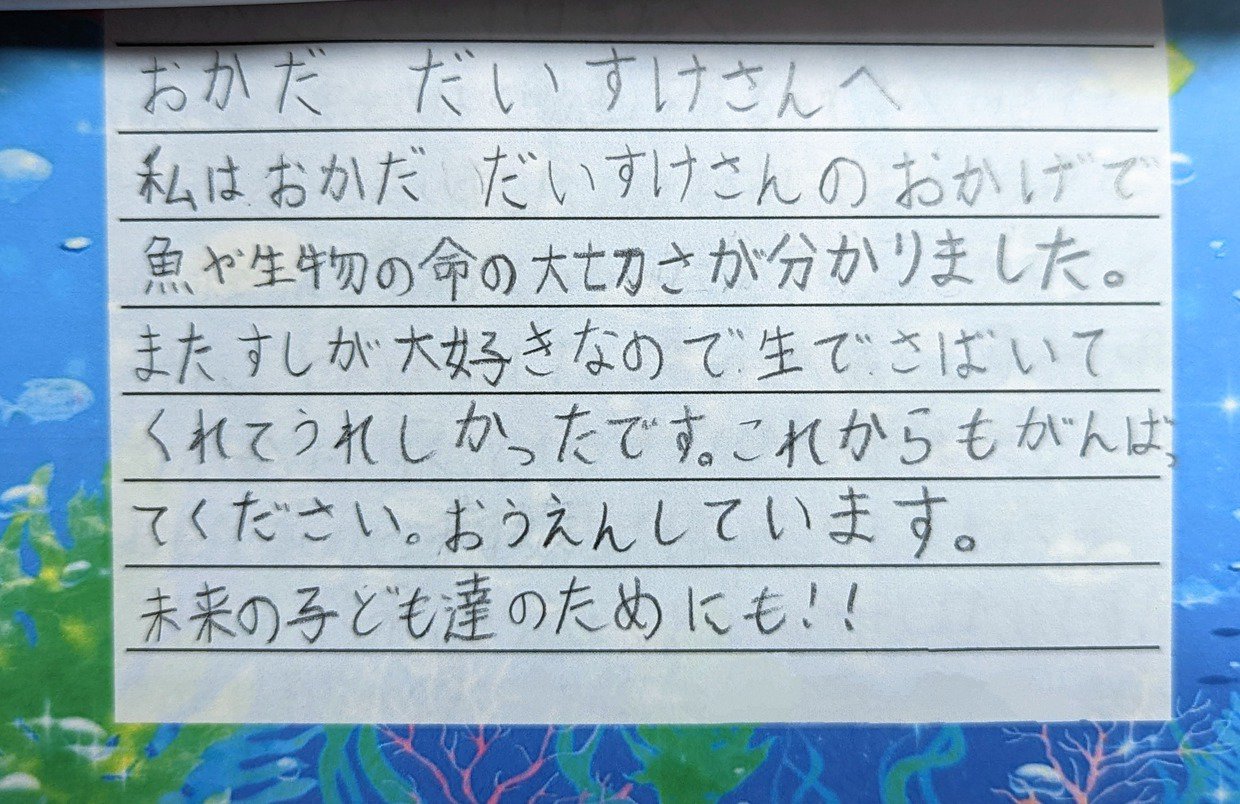 おかだ だいすけさんへ
私はおかだ だいすけさんのおかげで
魚や生物の命の大切さが分かりました。
またすしが大好きなので生でさばいて
くれてうれしかったです。これからもがんばっ
てください。おうえんしています。
未来の子ども達のためにも!!